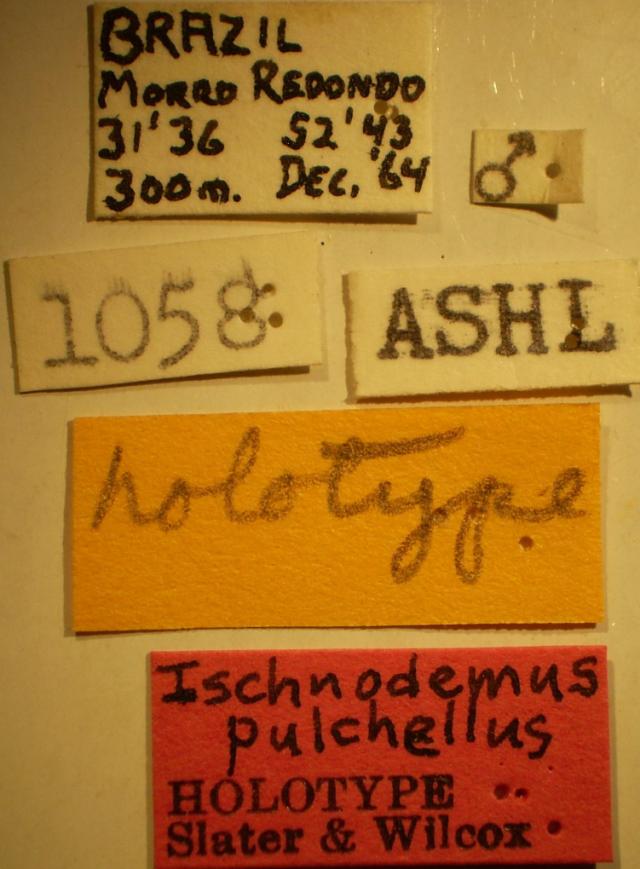 BRAZIL
MORRO REDONDO
31'36 52'43
300m. DEC. '64
♂
1058
ASHL
holotype
Ischnodemus
pulchellus
HOLOTYPE
Slater & Wilcox